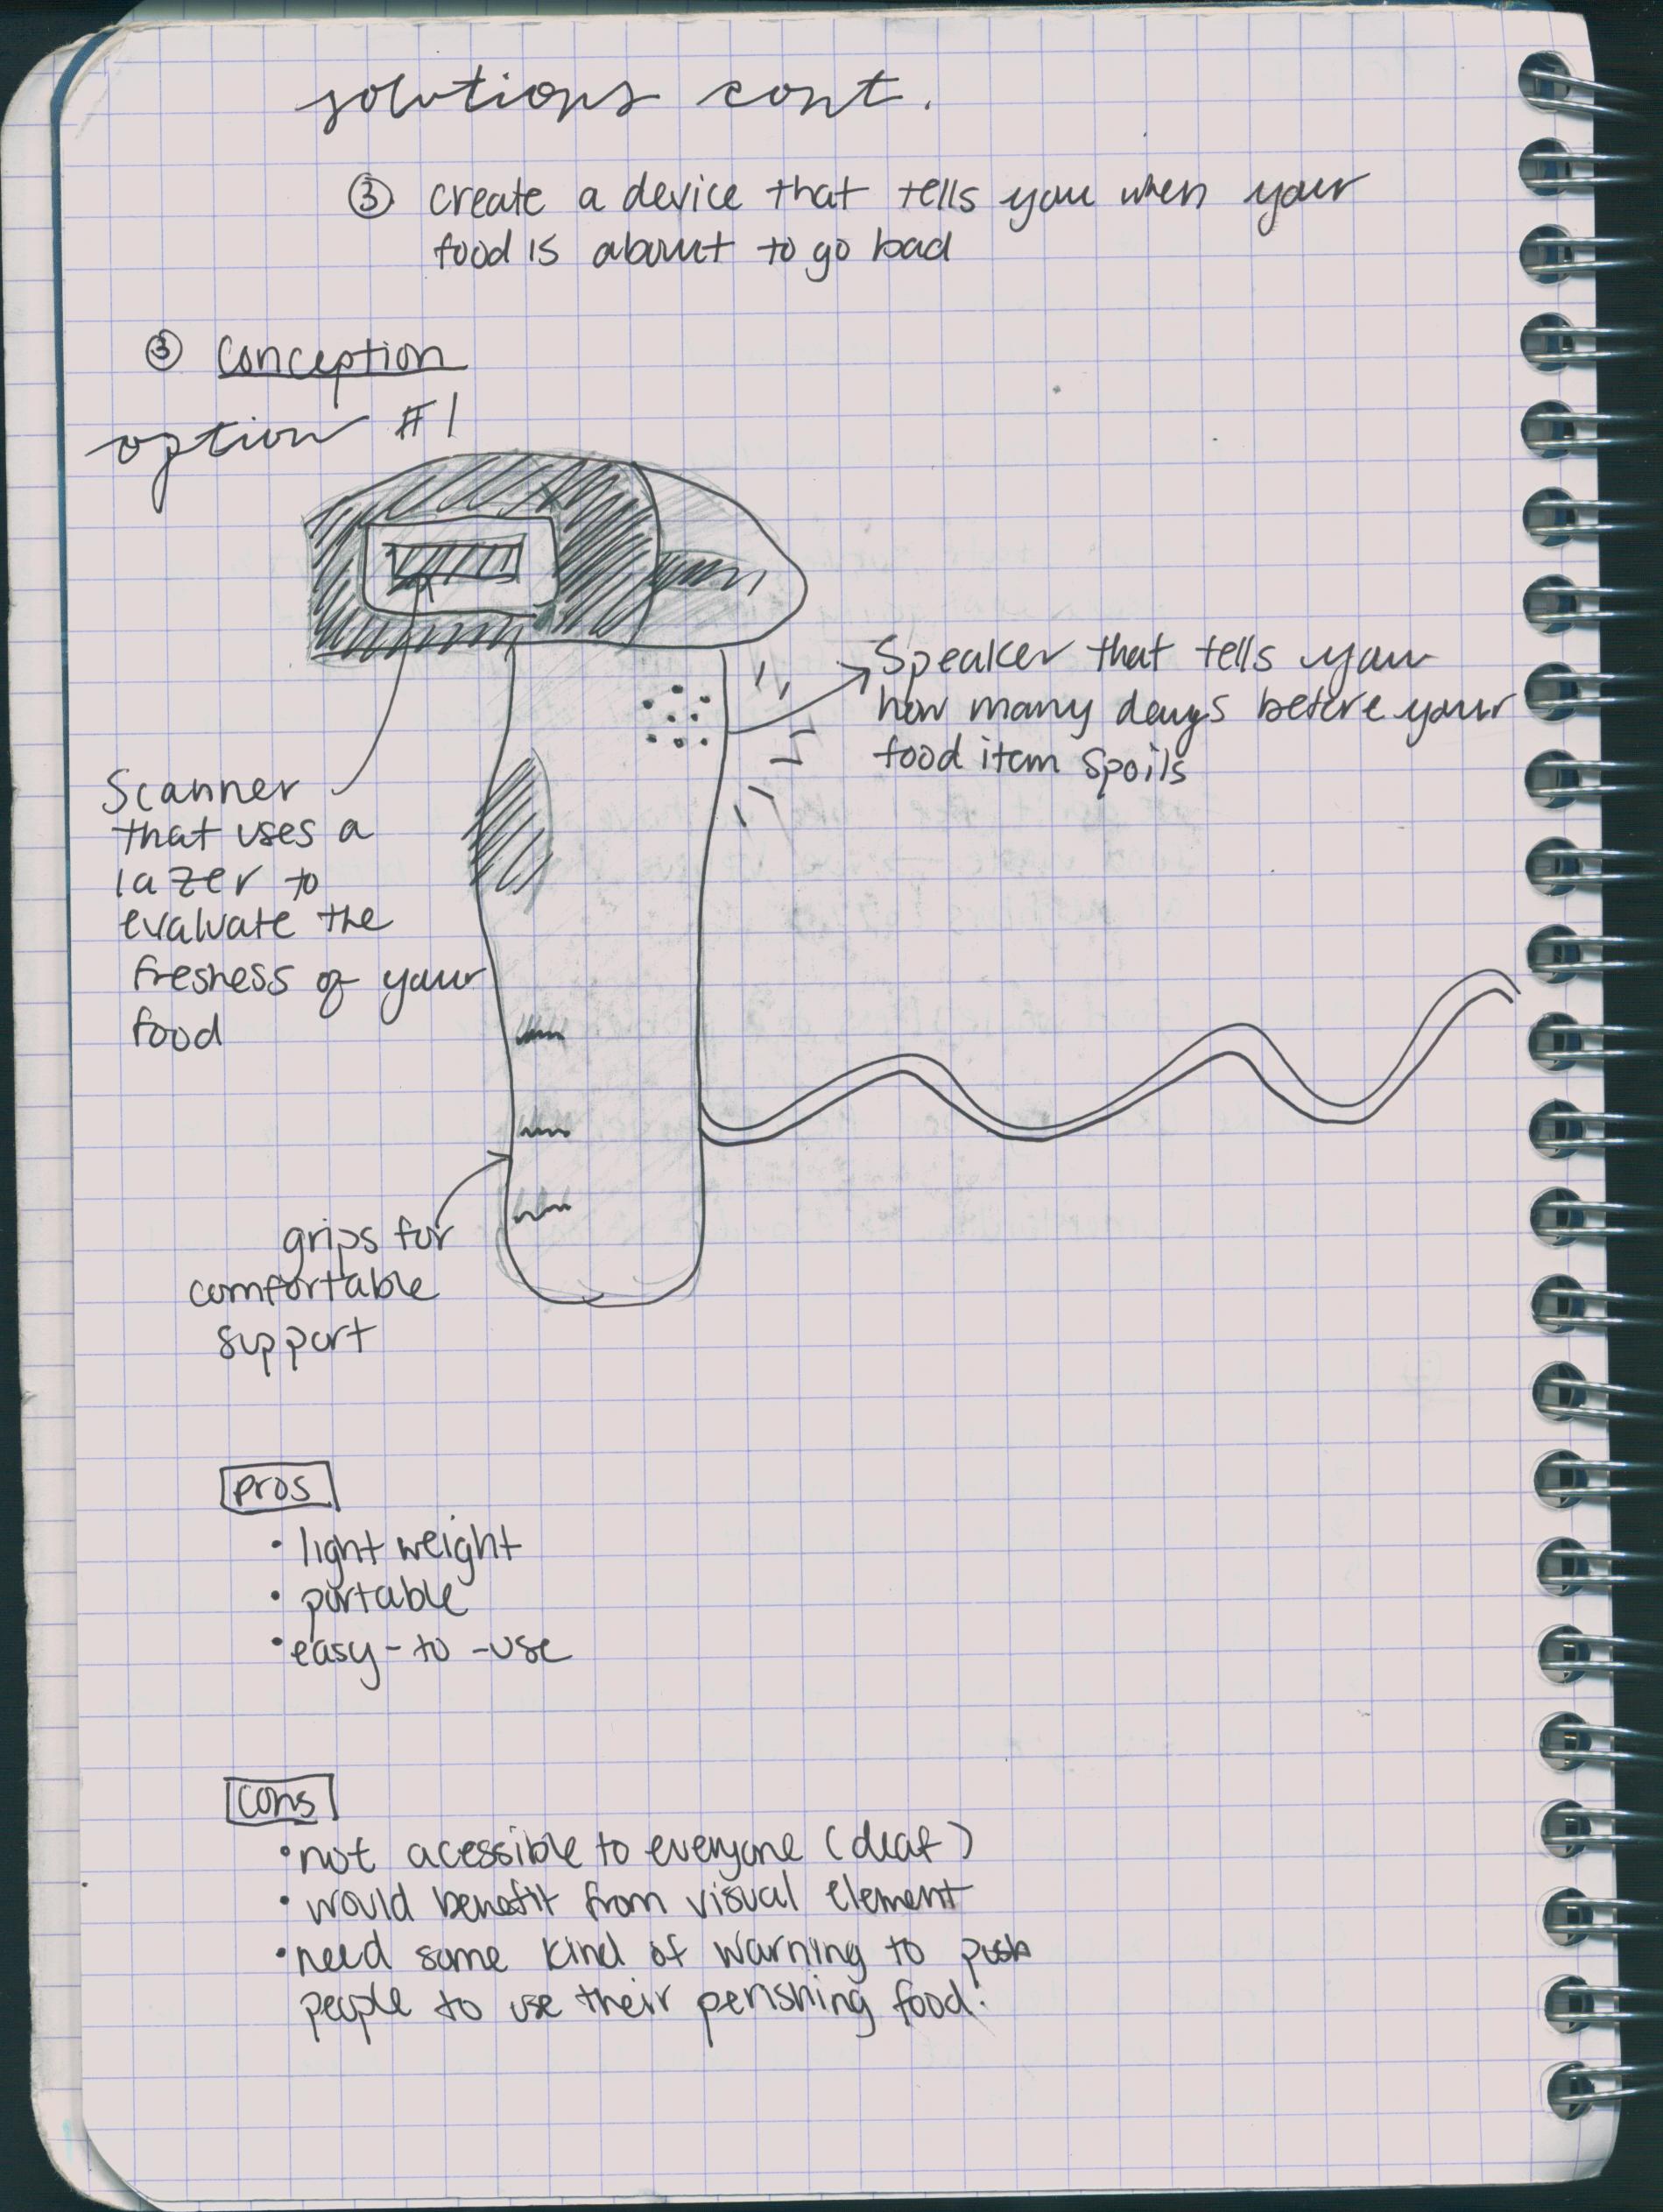 solutions cont.
③ create a device that tells you when your
food is about to go bad
③ Conception
option #1
Speaker that tells you
how many days before your
food item spoils
Scanner
that uses a
lazer to
evaluate the
freshess of your
food
grips for
comfortable
support
pros
• light weight
• portable
• easy-to-use
cons
• not acessible to everyone (deaf)
• would benefit from visual element
• need some kind of warning to push
people to use their perishing food.